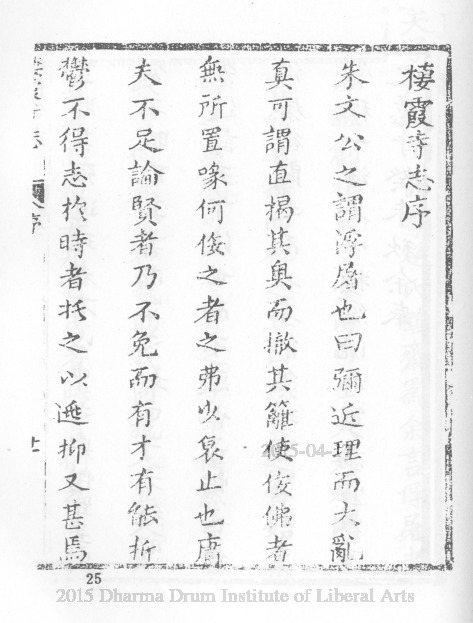 棲霞寺志序
朱文公之謂浮屠也曰彌近理而大亂
真可謂直揭其奥而撤其籬使佞佛者
無所置喙何佞之者之弗少衰止也庸
夫不足論賢者乃不免而有才有能折
鬱不得志於時者托之以逃抑又甚焉
序
25
2015 Dharma Drum Institute of Liberal Arts